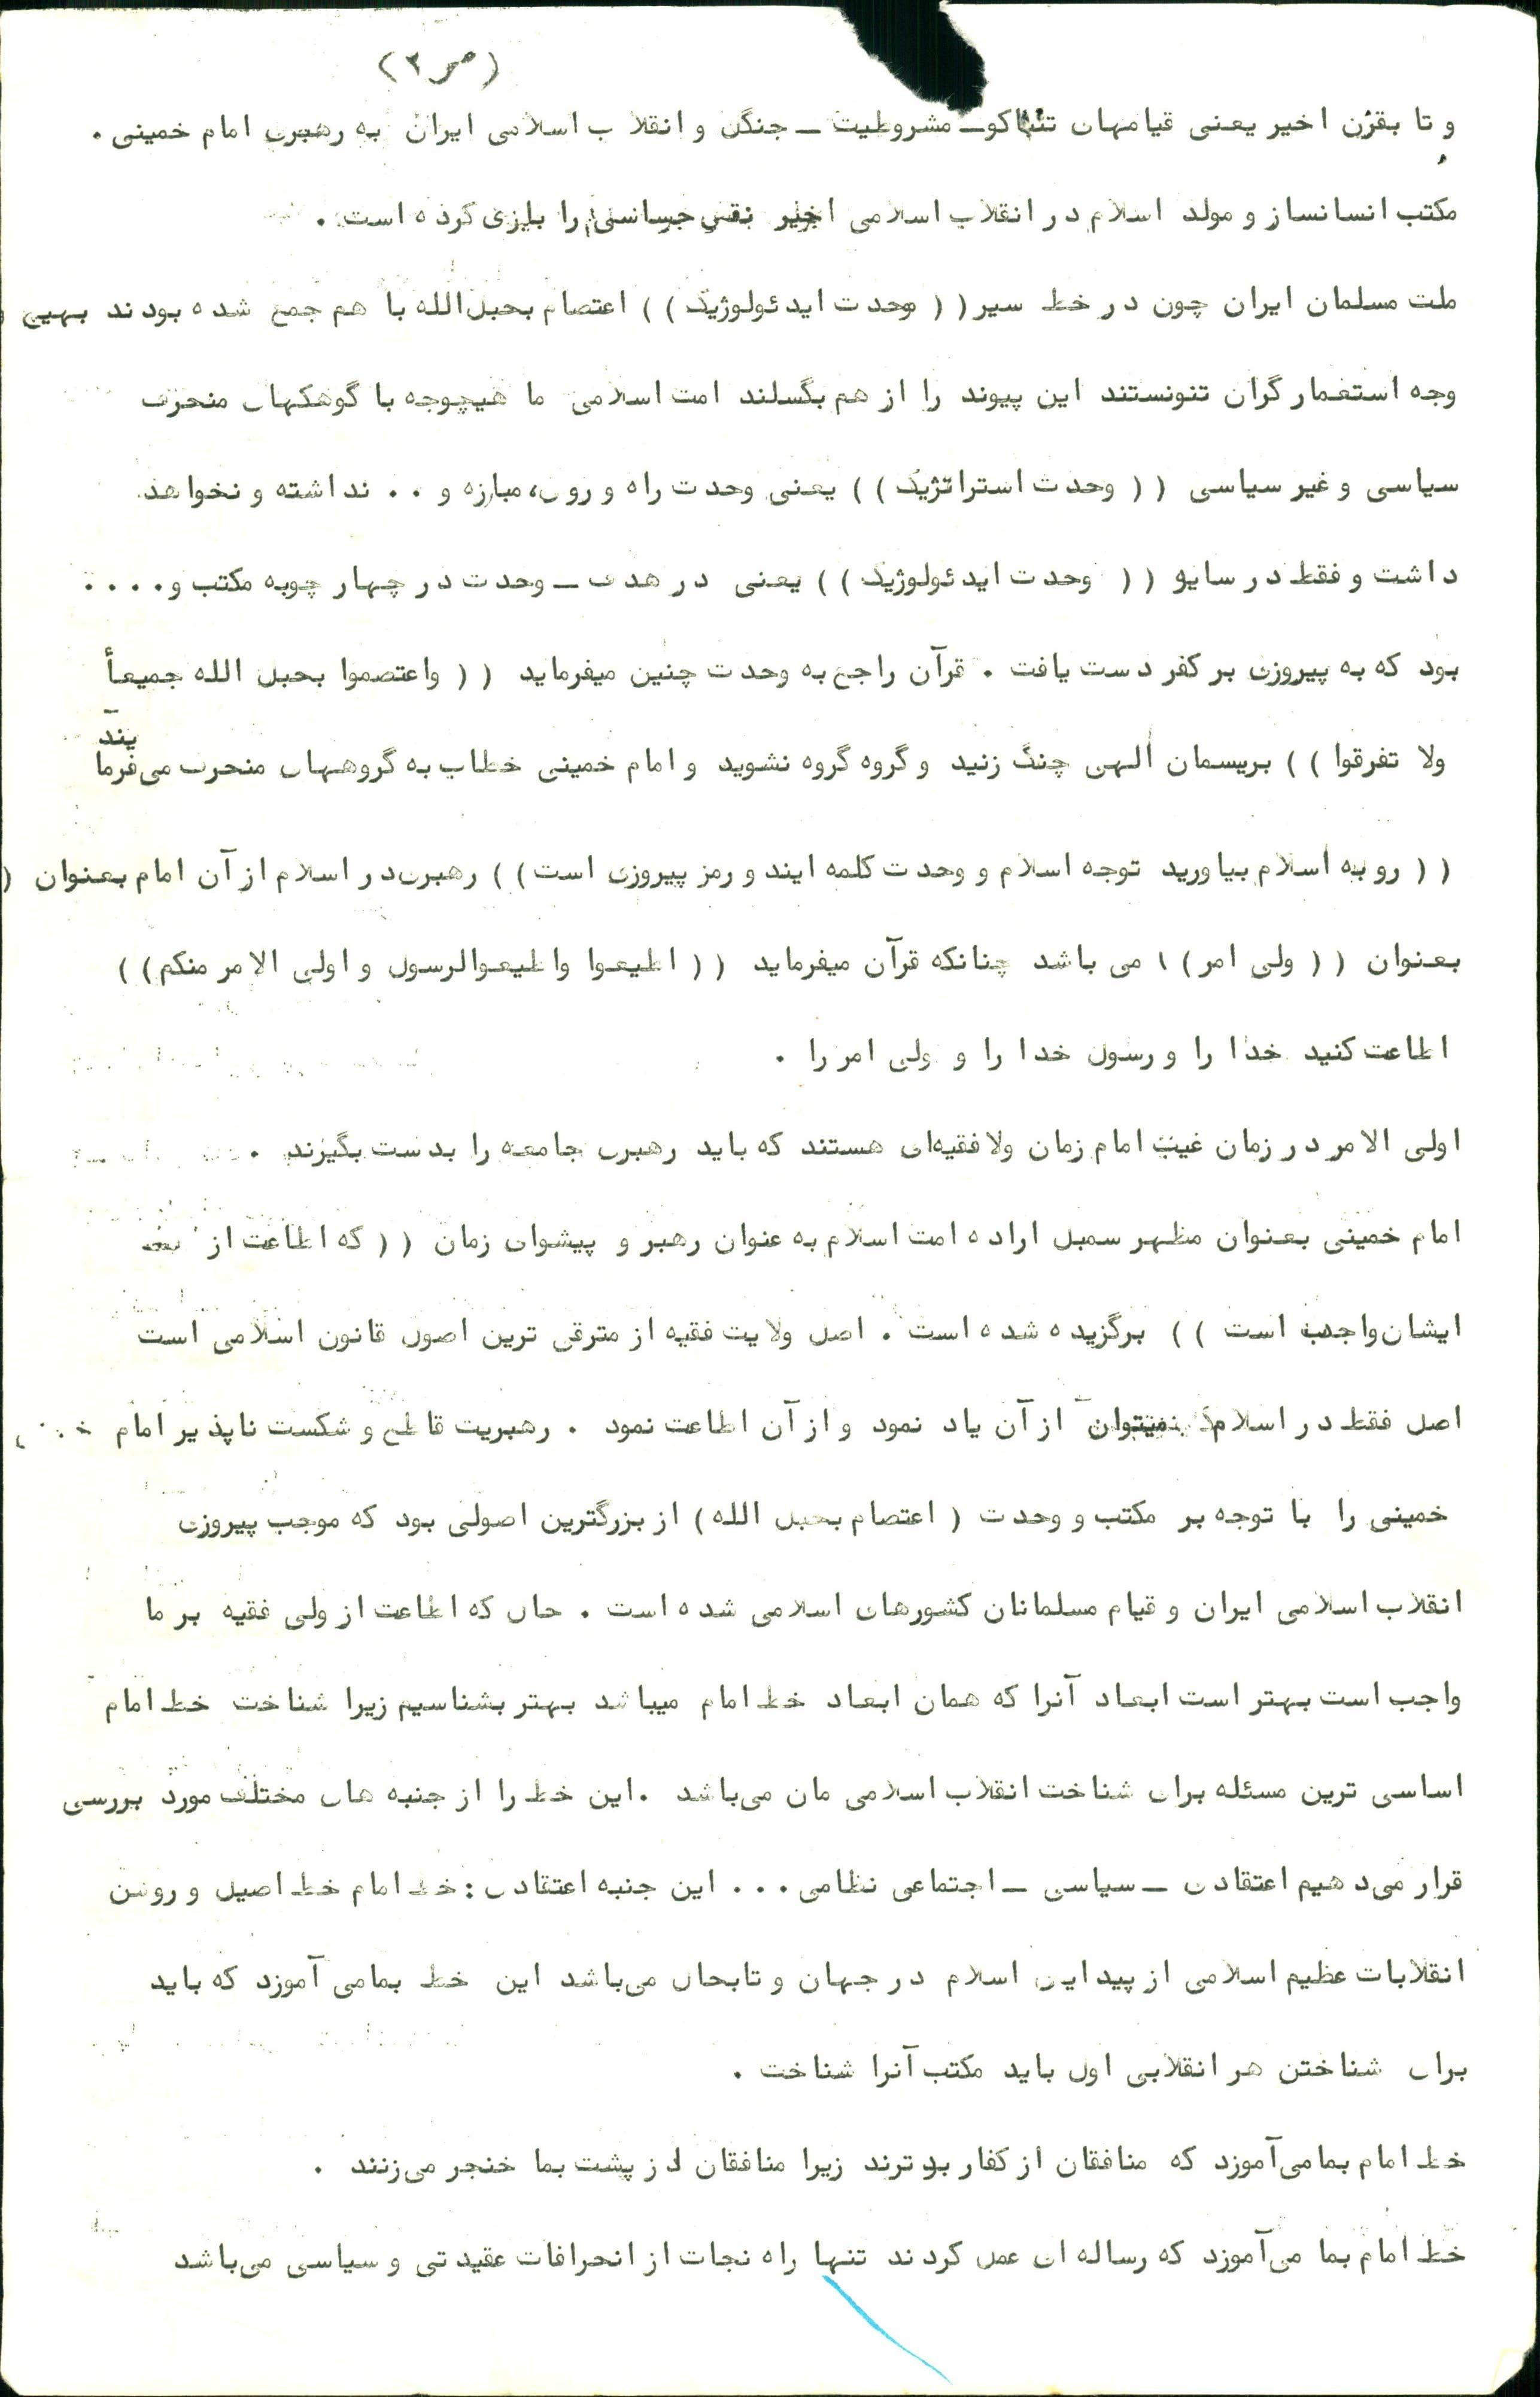 (ص ۲)
و تا بقرن اخیر یعنی قیامهای تنباکو ــ مشروطیت ــ جنگل و انقلاب اسلامی ایران به رهبری امام خمینی .
مکتب انسانساز و مولد اسلام در انقلاب اسلامی اخیر نقش حساسی را بازی کرده است .
ملت مسلمان ایران چون در خط سیر (( وحدت ایدئولوژیک )) اعتصام بحبل الله با هم جمع شده بودند بهیچ
وجه استعمارگران تنونستند این پیوند را از هم بگسلند امت اسلامی ما هیچوجه با گوهکهای منحرف
سیاسی و غیر سیاسی (( وحدت استراتژیک )) یعنی وحدت راه و روش، مبارزه و .. نداشته و نخواهد
داشت و فقط در سایه (( وحدت ایدئولوژیک )) یعنی در هدف ــ وحدت در چهار چوبه مکتب و ....
بود که به پیروزی بر کفر دست یافت . قرآن راجع به وحدت چنین میفرماید (( واعتصموا بحبل الله جمیعاً
ولا تفرقوا )) بریسمان الهی چنگ زنید و گروه گروه نشوید و امام خمینی خطاب به گروههای منحرف می‌فرمایند
(( رو به اسلام بیاورید توجه اسلام و وحدت کلمه ایند و رمز پیروزی است )) رهبری در اسلام از آن امام بعنوان (
بعنوان (( ولی امر )) می باشد چنانکه قرآن میفرماید (( اطیعوا واطیعوالرسول و اولی الامر منکم ))
اطاعت کنید خدا را و رسول خدا را و ولی امر را .
اولی الامر در زمان غیبت امام زمان ولافقیه‌ای هستند که باید رهبری جامعه را بدست بگیرند .
امام خمینی بعنوان مظهر سمبل اراده امت اسلام به عنوان رهبر و پیشوای زمان (( که اطاعت از
ایشان واجب است )) برگزیده شده است . اصل ولایت فقیه از مترقی ترین اصول قانون اسلامی است
اصل فقط در اسلام میتوان از آن یاد نمود و از آن اطاعت نمود . رهبریت قاطع و شکست ناپذیر امام
خمینی را با توجه بر مکتب و وحدت ( اعتصام بحبل الله ) از بزرگترین اصولی بود که موجب پیروزی
انقلاب اسلامی ایران و قیام مسلمانان کشورهای اسلامی شده است . حال که اطاعت از ولی فقیه بر ما
واجب است بهتر است ابعاد آنرا که همان ابعاد خط امام میباشد بهتر بشناسیم زیرا شناخت خط امام
اساسی ترین مسئله برای شناخت انقلاب اسلامی مان می‌باشد . این خط را از جنبه های مختلف مورد بررسی
قرار می‌دهیم اعتقادی ــ سیاسی ــ اجتماعی نظامی ... این جنبه اعتقادی : خط امام خط اصیل و روشن
انقلابات عظیم اسلامی از پیدایش اسلام در جهان و تابحال می‌باشد این خط بما می آموزد که باید
برای شناختن هر انقلابی اول باید مکتب آنرا شناخت .
خط امام بما می‌آموزد که منافقان از کفار بدترند زیرا منافقان از پشت بما خنجر می‌زنند .
خط امام بما می‌آموزد که رساله ای عمل کردند تنها راه نجات از انحرافات عقیدتی و سیاسی می‌باشد